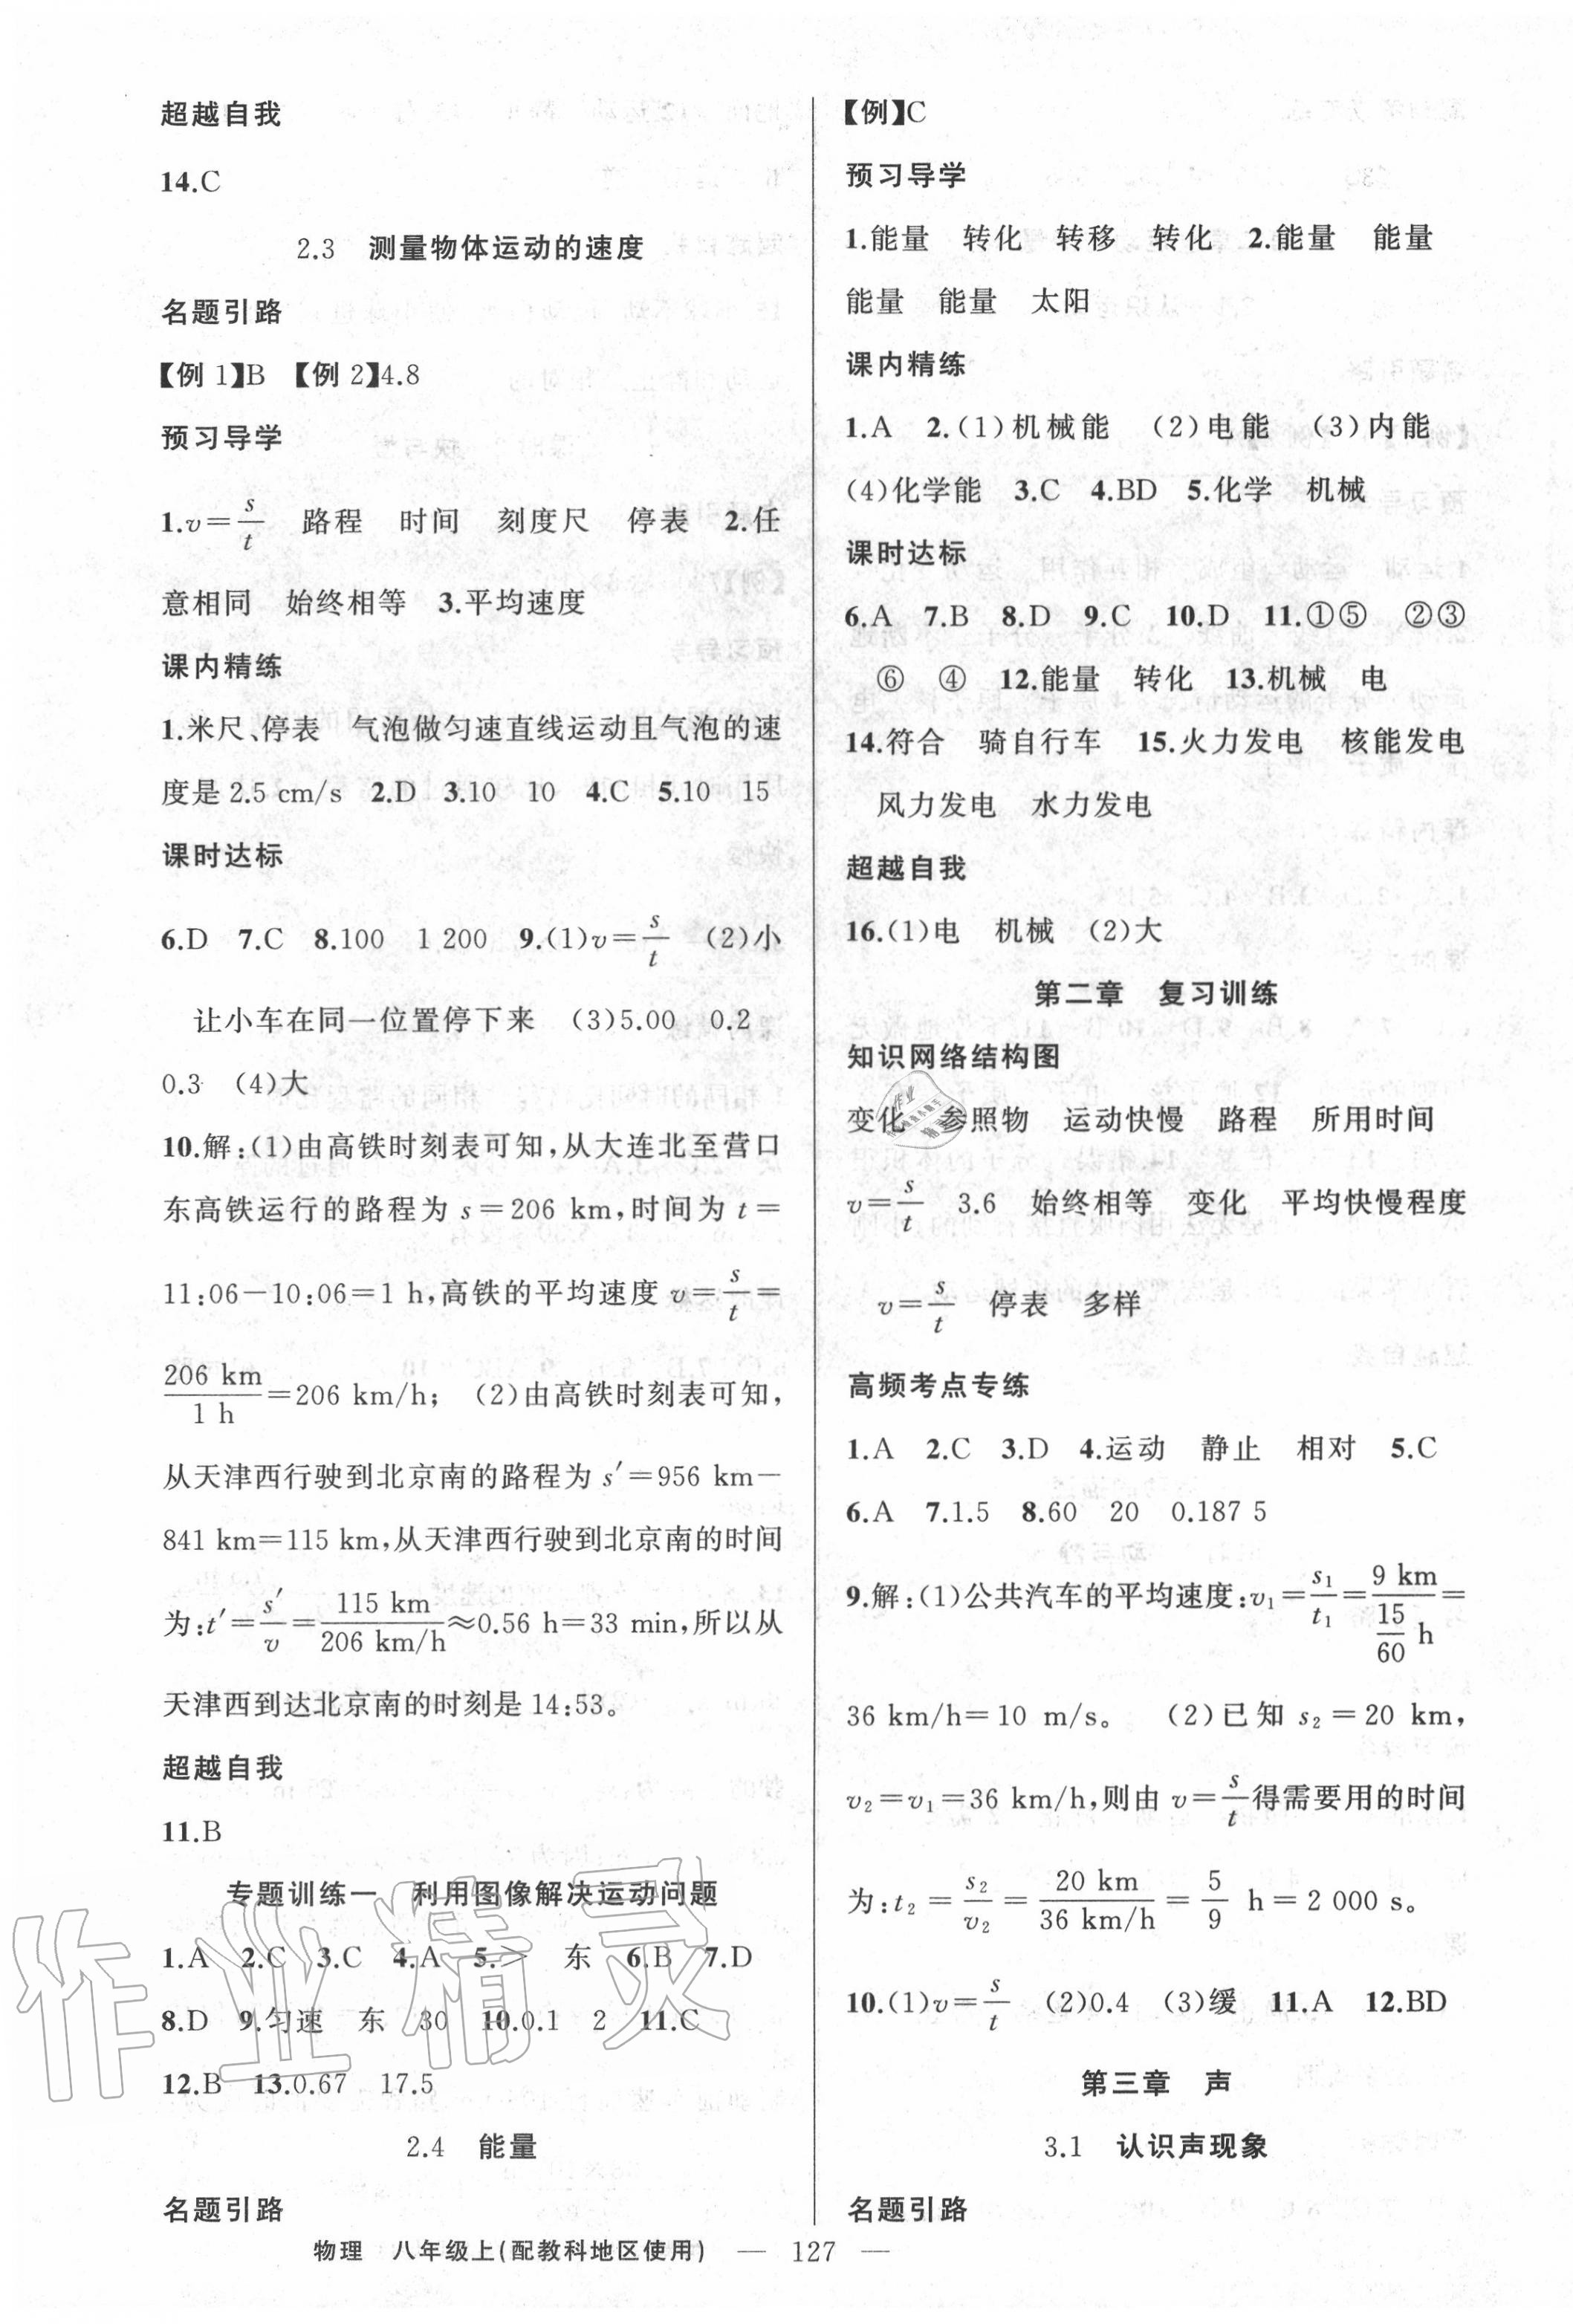 超越自我
14.C
2.3 测量物体运动的速度
名题引路
【例 1】B 【例 2】4.8
预习导学
1.v=s/t 路程 时间 刻度尺 停表 2.任
意相同 始终相等 3.平均速度
课内精练
1.米尺、停表 气泡做匀速直线运动且气泡的速
度是 2.5 cm/s 2.D 3.10 10 4.C 5.10 15
课时达标
6.D 7.C 8.100 1 200 9.(1)v=s/t (2)小
让小车在同一位置停下来 (3)5.00 0.2
0.3 (4)大
10.解:(1)由高铁时刻表可知,从大连北至营口
东高铁运行的路程为 s=206 km,时间为 t=
11:06-10:06=1 h,高铁的平均速度 v=s/t=
206 km/1 h=206 km/h; (2)由高铁时刻表可知,
从天津西行驶到北京南的路程为 s′=956 km-
841 km=115 km,从天津西行驶到北京南的时间
为:t′=s′/v=115 km/206 km/h≈0.56 h=33 min,所以从
天津西到达北京南的时刻是 14:53。
超越自我
11.B
专题训练一 利用图像解决运动问题
1.A 2.C 3.C 4.A 5.> 东 6.B 7.D
8.D 9.匀速 东 30 10.0.1 2 11.C
12.B 13.0.67 17.5
2.4 能量
名题引路
【例】C
预习导学
1.能量 转化 转移 转化 2.能量 能量
能量 能量 太阳
课内精练
1.A 2.(1)机械能 (2)电能 (3)内能
(4)化学能 3.C 4.BD 5.化学 机械
课时达标
6.A 7.B 8.D 9.C 10.D 11.①⑤ ②③
⑥ ④ 12.能量 转化 13.机械 电
14.符合 骑自行车 15.火力发电 核能发电
风力发电 水力发电
超越自我
16.(1)电 机械 (2)大
第二章 复习训练
知识网络结构图
变化 参照物 运动快慢 路程 所用时间
v=s/t 3.6 始终相等 变化 平均快慢程度
v=s/t 停表 多样
高频考点专练
1.A 2.C 3.D 4.运动 静止 相对 5.C
6.A 7.1.5 8.60 20 0.187 5
9.解:(1)公共汽车的平均速度:v₁=s₁/t₁=9 km/(15/60 h)=
36 km/h=10 m/s。 (2)已知 s₂=20 km,
v₂=v₁=36 km/h,则由 v=s/t得需要用的时间
为:t₂=s₂/v₂=20 km/36 km/h=5/9 h=2 000 s。
10.(1)v=s/t (2)0.4 (3)缓 11.A 12.BD
第三章 声
3.1 认识声现象
名题引路
物理 八年级上(配教科地区使用) — 127 —
作业精灵